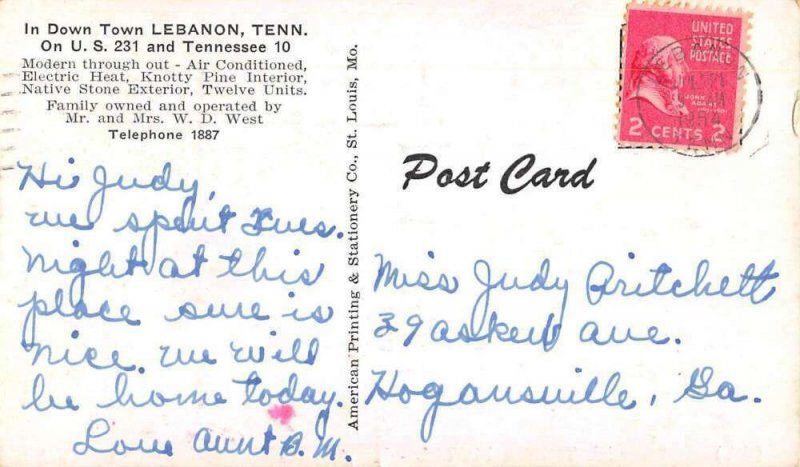 In Down Town LEBANON, TENN.
On U. S. 231 and Tennessee 10
Modern through out - Air Conditioned,
Electric Heat, Knotty Pine Interior,
Native Stone Exterior, Twelve Units.
Family owned and operated by
Mr. and Mrs. W. D. West
Telephone 1887
Hi Judy,
we spent Tues.
night at this
place sure is
nice. we will
be home today.
Love Aunt B.M.
American Printing & Stationery Co., St. Louis, Mo.
UNITED
STATES
POSTAGE
JOHN
ADAMS
2 CENTS 2
Post Card
Miss Judy Pritchett
39 Askew ave.
Hogansville, Ga.